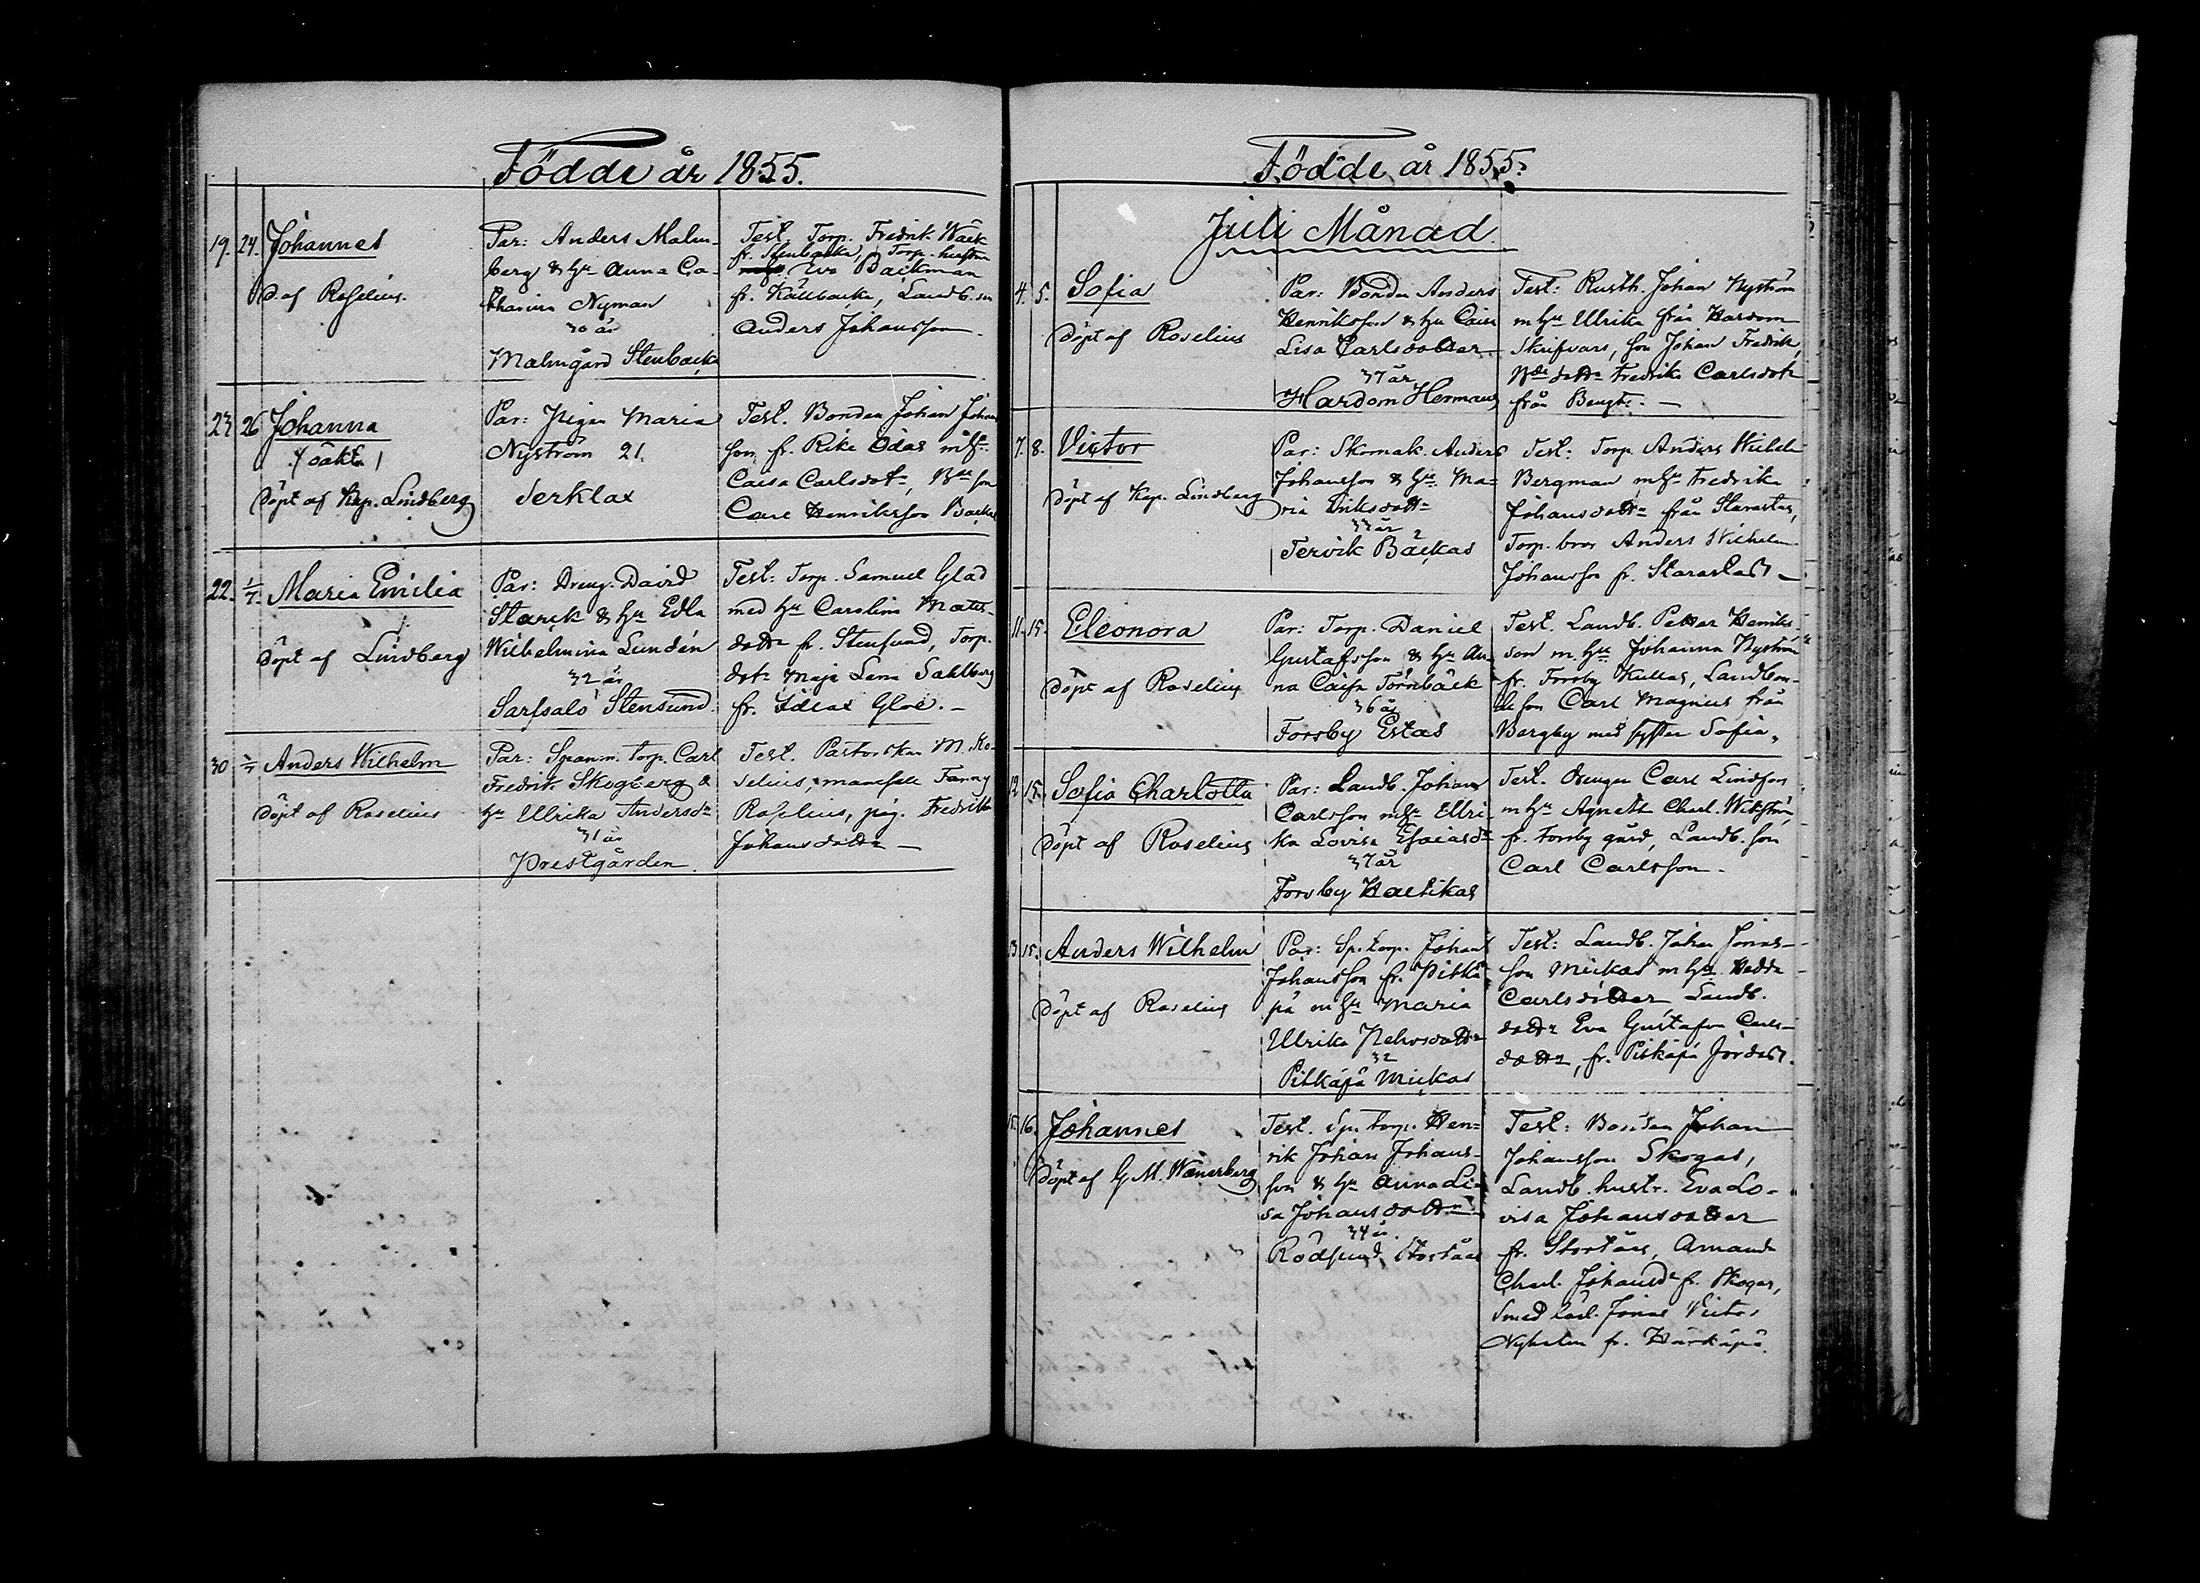 Födde år 1855.
19. 24. Johannes
D. af Roselius.
Par: Anders Malm-
berg & hu Anna Ca-
tharina Nyman
30 år
Malmgård Stenbacka
Test. Torp. Fredrik Wäck
fr. Stenbacka, Torp. hustru
Eva Backman
fr. Källbacka, Landb. son
Anders Johansson.
23 26 Johanna
(oäkta)
Döpt af Kap. Lindberg
Par: Pigan Maria
Nyström 21.
Derklax
Test. Bonden Johan Johans
son fr. Rike Ödas m. h.
Caisa Carlsdotr, Bde son
Carl Henriksson Backas
22. 1/7. Maria Emilia
Döpt af Lindberg
Par: Dreng. David
Starck & hu Edla
Wilhelmina Lundén
32 år
Sarfsalö Stensund.
Test: Torp. Samuel Glad
med hu Carolina Mats-
dottr fr. Stensund, Torp.
dotr Maja Lena Sahlberg
fr. Idlax Gloë. –
30 2/7 Anders Wilhelm
Döpt af Roselius
Par: Spanm. torp. Carl
Fredrik Skogberg &
hu Ullrika Andersdr
31 år
Prestgården.
Test. Pastorskan M. Ro-
selius, mamsell Fanny
Roselius, pig. Fredrika
Johansdottr –
Födde år 1855.
Juli Månad.
4. 5. Sofia
Döpt af Roselius
Par: Bonden Anders
Henriksson & hu Caisa
Lisa Carlsdotter.
37 år
Hardom Hermans
Test: Rusth. Johan Nyström
m hu Ullrika från Hardom
Skrifvars, son Johan Fredrik,
Bde dottr Fredrika Carlsdotr
från Bengts. –
7. 8. Victor
Döpt af Kap. Lindberg
Par: Skomak. Anders
Johansson & hu Ma-
ria Eriksdottr
33 år
Tervik Bäckas
Test: Torp. Anders Wilhelm
Bergman m hu Fredrika
Johansdottr från Starastas,
Torp. bror Anders Wilhelm
Johansson fr. Starastas –
11. 15. Eleonora
Döpt af Roselius
Par: Torp. Daniel
Gustafsson & hu An-
na Caisa Törnbäck
36 år
Forsby Estas
Test. Landb. Petter Henriks-
son m hu Johanna Nyström
fr. Forsby Kullas, Landbon-
de son Carl Magnus från
Bergby med syster Sofia.
12 15. Sofia Charlotta
Döpt af Roselius
Par: Landb. Johan
Carlsson m hu Ullri-
ka Lovisa Esaiasdr
37 år
Forsby Haetikas
Test. Drengen Carl Lindfors
m hu Agneta Charl. Wikström
fr. Forsby gård, Landb. son
Carl Carlsson.
13 15. Anders Wilhelm
Döpt af Roselius
Par: Sp. torp. Johan
Johansson fr. Pitkä
på m hu Maria
Ulrika
32
Pitkäpä Mickas
Test: Landb. Johan Jonas-
son Mickas m hu Hedda
Carlsdotter Landb.
dottr Eva Gustafva Carls-
dottr, fr. Pitkäpä Jordas.
15. 16. Johannes
Döpt af G. M. Wanerberg
Test. Sp. torp. Hen-
rik Johan Johans-
son & hu Anna Li-
sa Johansdottr
34 år.
Rödsund Storåns
Test: Bonden Johan
Johansson Skogas,
Landb. hustr. Eva Lo-
visa Johansdotter
fr. Storåns, Amanda
Charl. Johansdr fr. Skogas,
Smed lärl. Jonas Victor
Nyholm fr. Härkäpä.